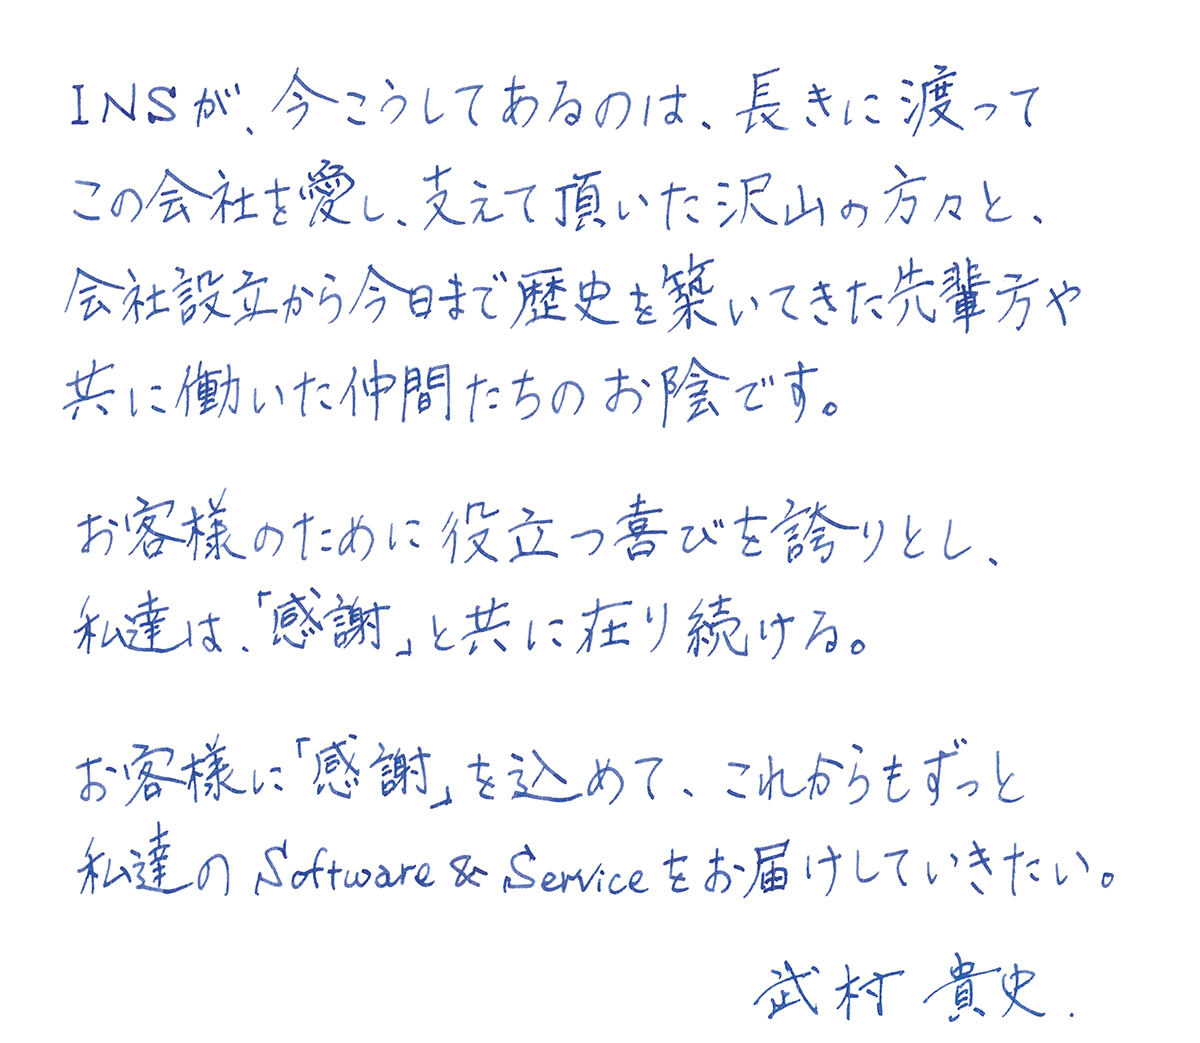 INSが、今こうしてあるのは、長きに渡って
この会社を愛し、支えて頂いた沢山の方々と、
会社設立から今日まで歴史を築いてきた先輩方や
共に働いた仲間たちのお陰です。
お客様のために役立つ喜びを誇りとし、
私達は、「感謝」と共に在り続ける。
お客様に「感謝」を込めて、これからもずっと
私達のSoftware & Serviceをお届けしていきたい。
武村 貴史.